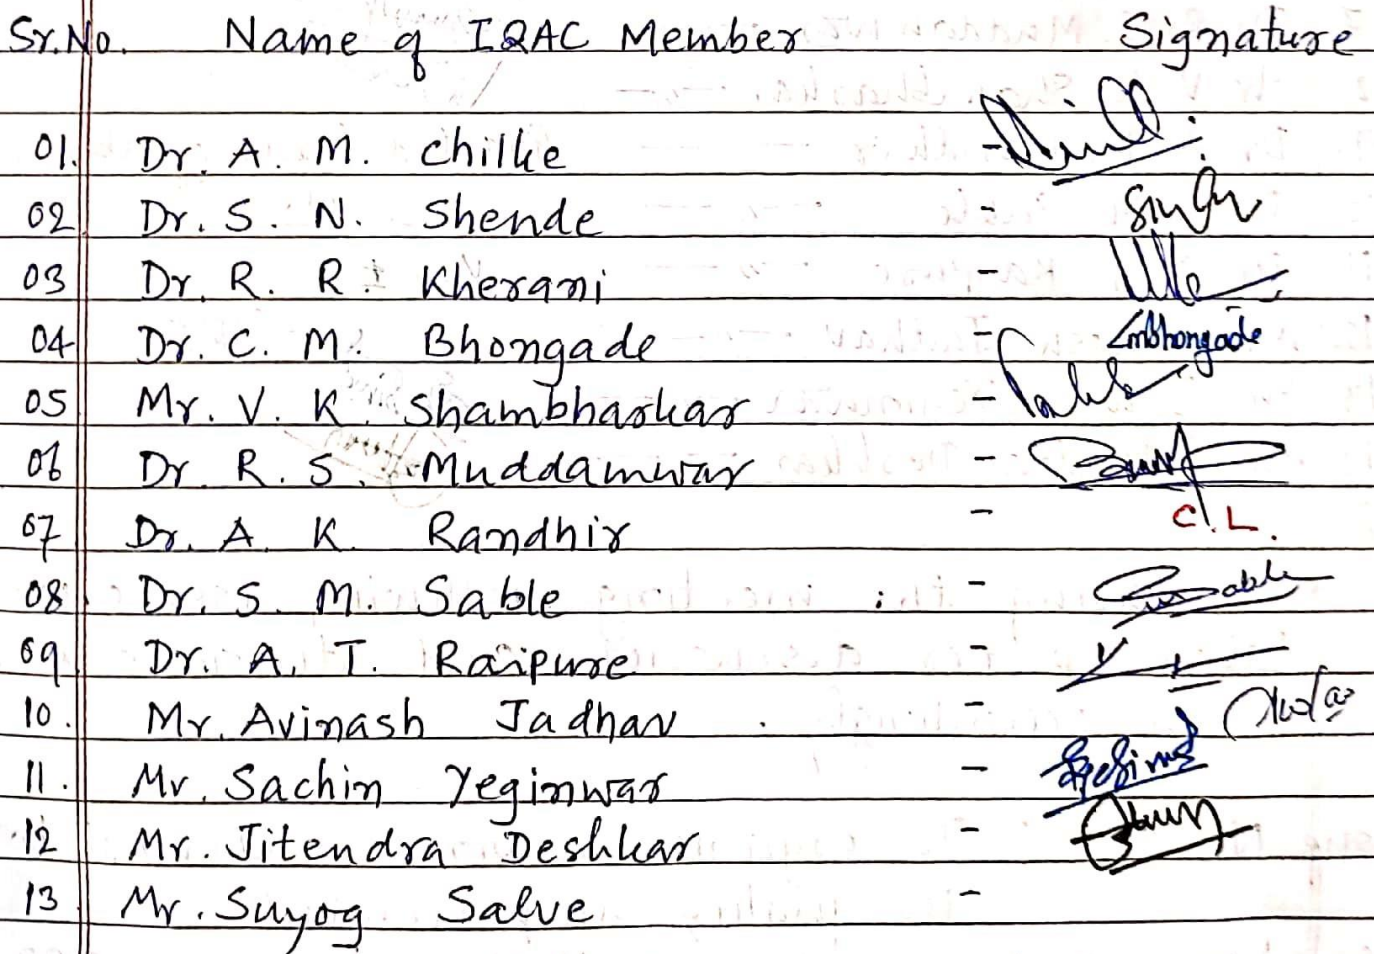 Sr.No. Name of IQAC Member Signature
01. Dr. A. M. Chilke -
02 Dr. S. N. Shende -
03 Dr. R. R. Kherani -
04 Dr. C. M. Bhongade - CMBhongade
05 Mr. V. K. Shambharkar -
06 Dr. R. S. Muddamwar -
07 Dr. A. K. Randhir - C.L.
08 Dr. S. M. Sable - Sable
09 Dr. A. T. Raipure -
10. Mr. Avinash Jadhav -
11. Mr. Sachin Yeginwar -
12 Mr. Jitendra Deshkar -
13 Mr. Suyog Salve -